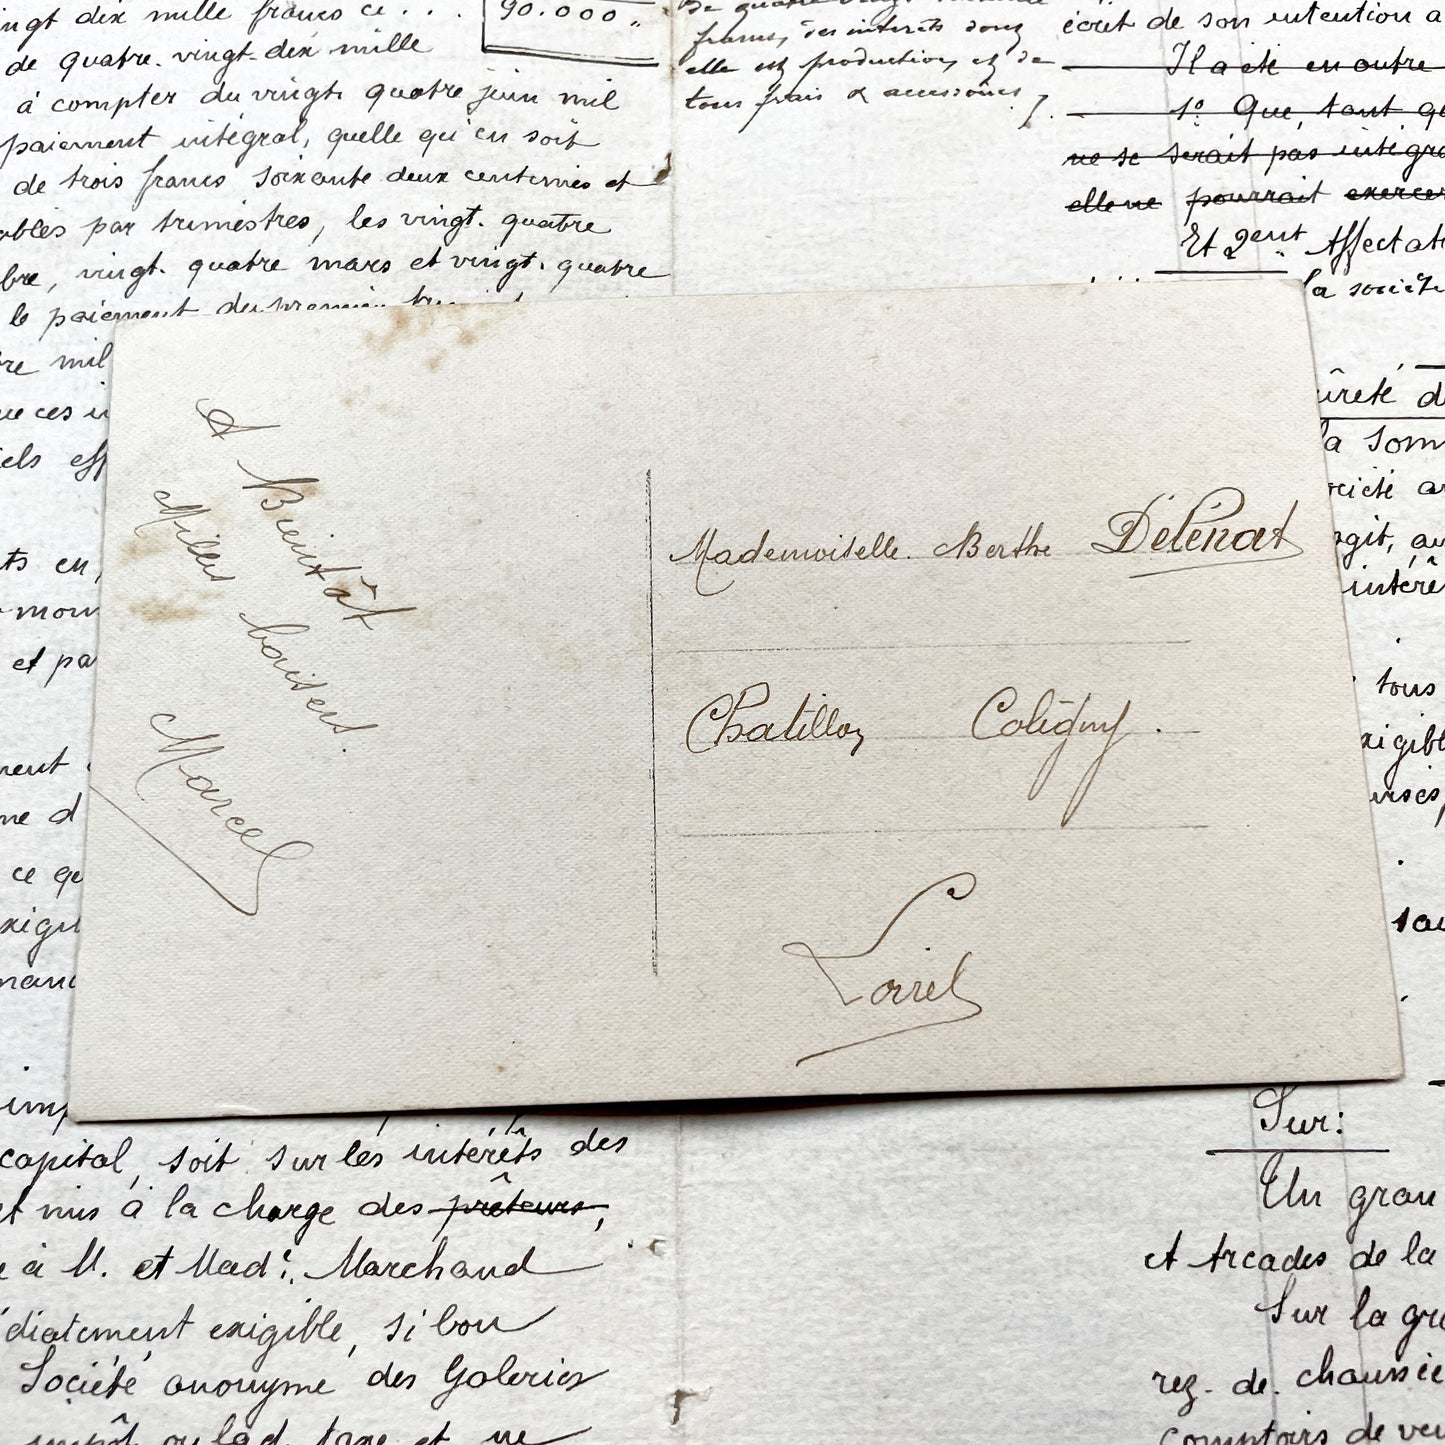 ingt dix mille francs ce . . .
90.000 "
de quatre. vingt. dix mille
à compter du vingt quatre juin mil
paiement intégral, quelle qu'en soit
de trois francs soixante deux centimes et
ables par trimestres, les vingt. quatre
bre, vingt. quatre mars et vingt. quatre
le paiement du premier
mil
ue ces i
iels eff
ts en,
et pa
ment
me d
ce qu
exigi
De quatre vingt
francs, des intérêts dont
elle est productive, et de
tous frais & accessoires
écret de son intention a
Il a été en outre
1º Que, tant qu
ne se serait pas intégra
elle ne pourrait exercer
Et 2ent Affectati
la société
ûreté d
la Som
ociété a
agit, au
intérê
tous
xigibl
sau
A Bientôt
Milles baisers.
Marcel
Mademoiselle. Berthe Délénat
Chatillon Coligny.
Loiret
capital, soit sur les intérêts des
et mis à la charge des prêteurs,
à M. et Made. Marchand
édiatement exigible, si bon
Société anonyme des Galeries
impôt ou lad. taxe et ne
Sur:
Un gran
et Arcades de la
Sur la gra
rez. de. chaussée
comptoirs de ven